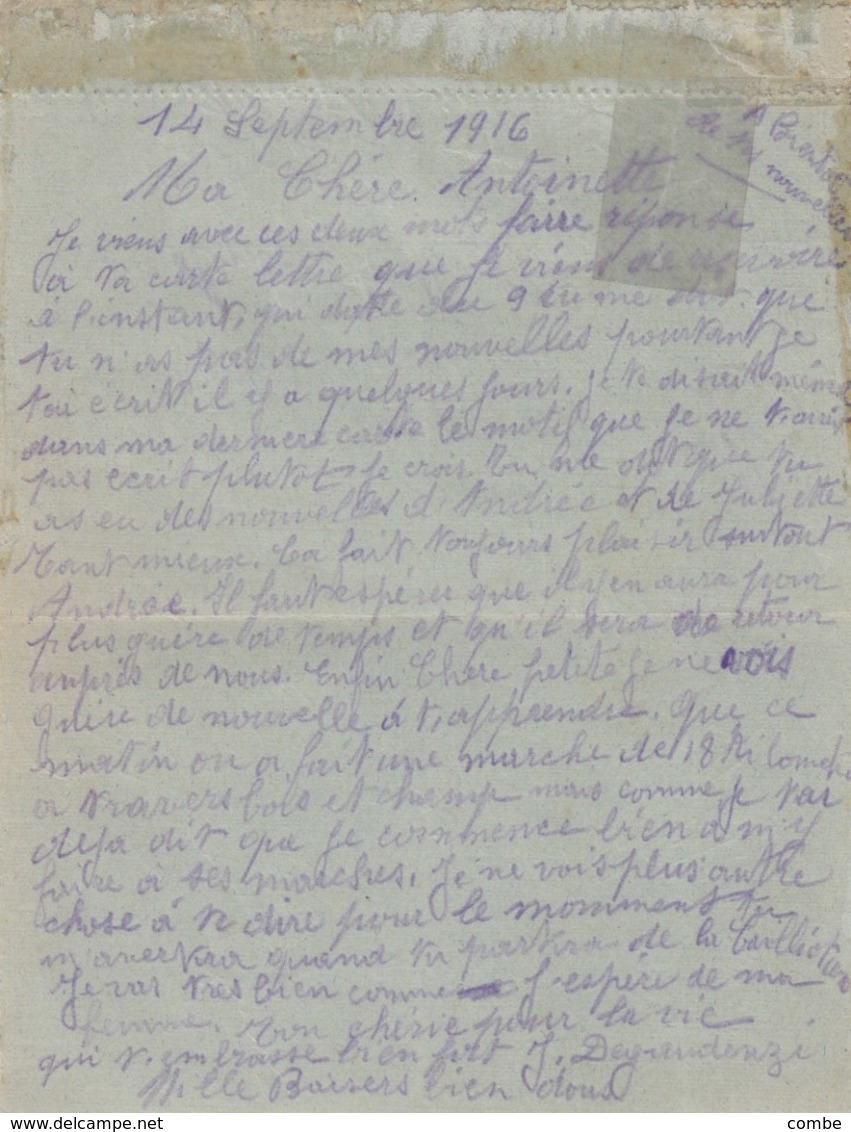 14 Septembre 1916
A Bientôt
de tes nouvelles
Ma Chère. Antoinette
Je viens avec ces deux mots faire réponse
à ta carte lettre que je viens de
à l'instant, qui datte du 9 tu me dit que
tu n'as pas de mes nouvelles pourtant je
t'ai écrit il y a quelques jours. je te disait même
dans ma dernière carte le motif que je ne t'ai
pas écrit plutot je crois. Tu me dit que tu
as eu des nouvelles d'Andrée et de Juliette
Tant mieux. Ca fait toujours plaisir surtout
Andrée. Il faut espérer que il y en aura pour
plus guère de temps et qu'il sera de retour
auprès de nous. Enfin Chère petite je ne vois
guère de nouvelle à t,apprendre. que ce
matin on a fait une marche de 18 Kilometre
a travers bois et champ mais comme je t'ai
deja dit que je commence bien a m'y
faire à ses marches. Je ne vois plus autre
chose à te dire pour le momment tu
m'avertra quand tu partra de la
Je vas tres bien comme j'espère de ma
femme. Ton chérie pour la vie
qui t,embrasse bien fort J. Degaudenzi
Mille Baisers bien doux
Delcampe.net
combe